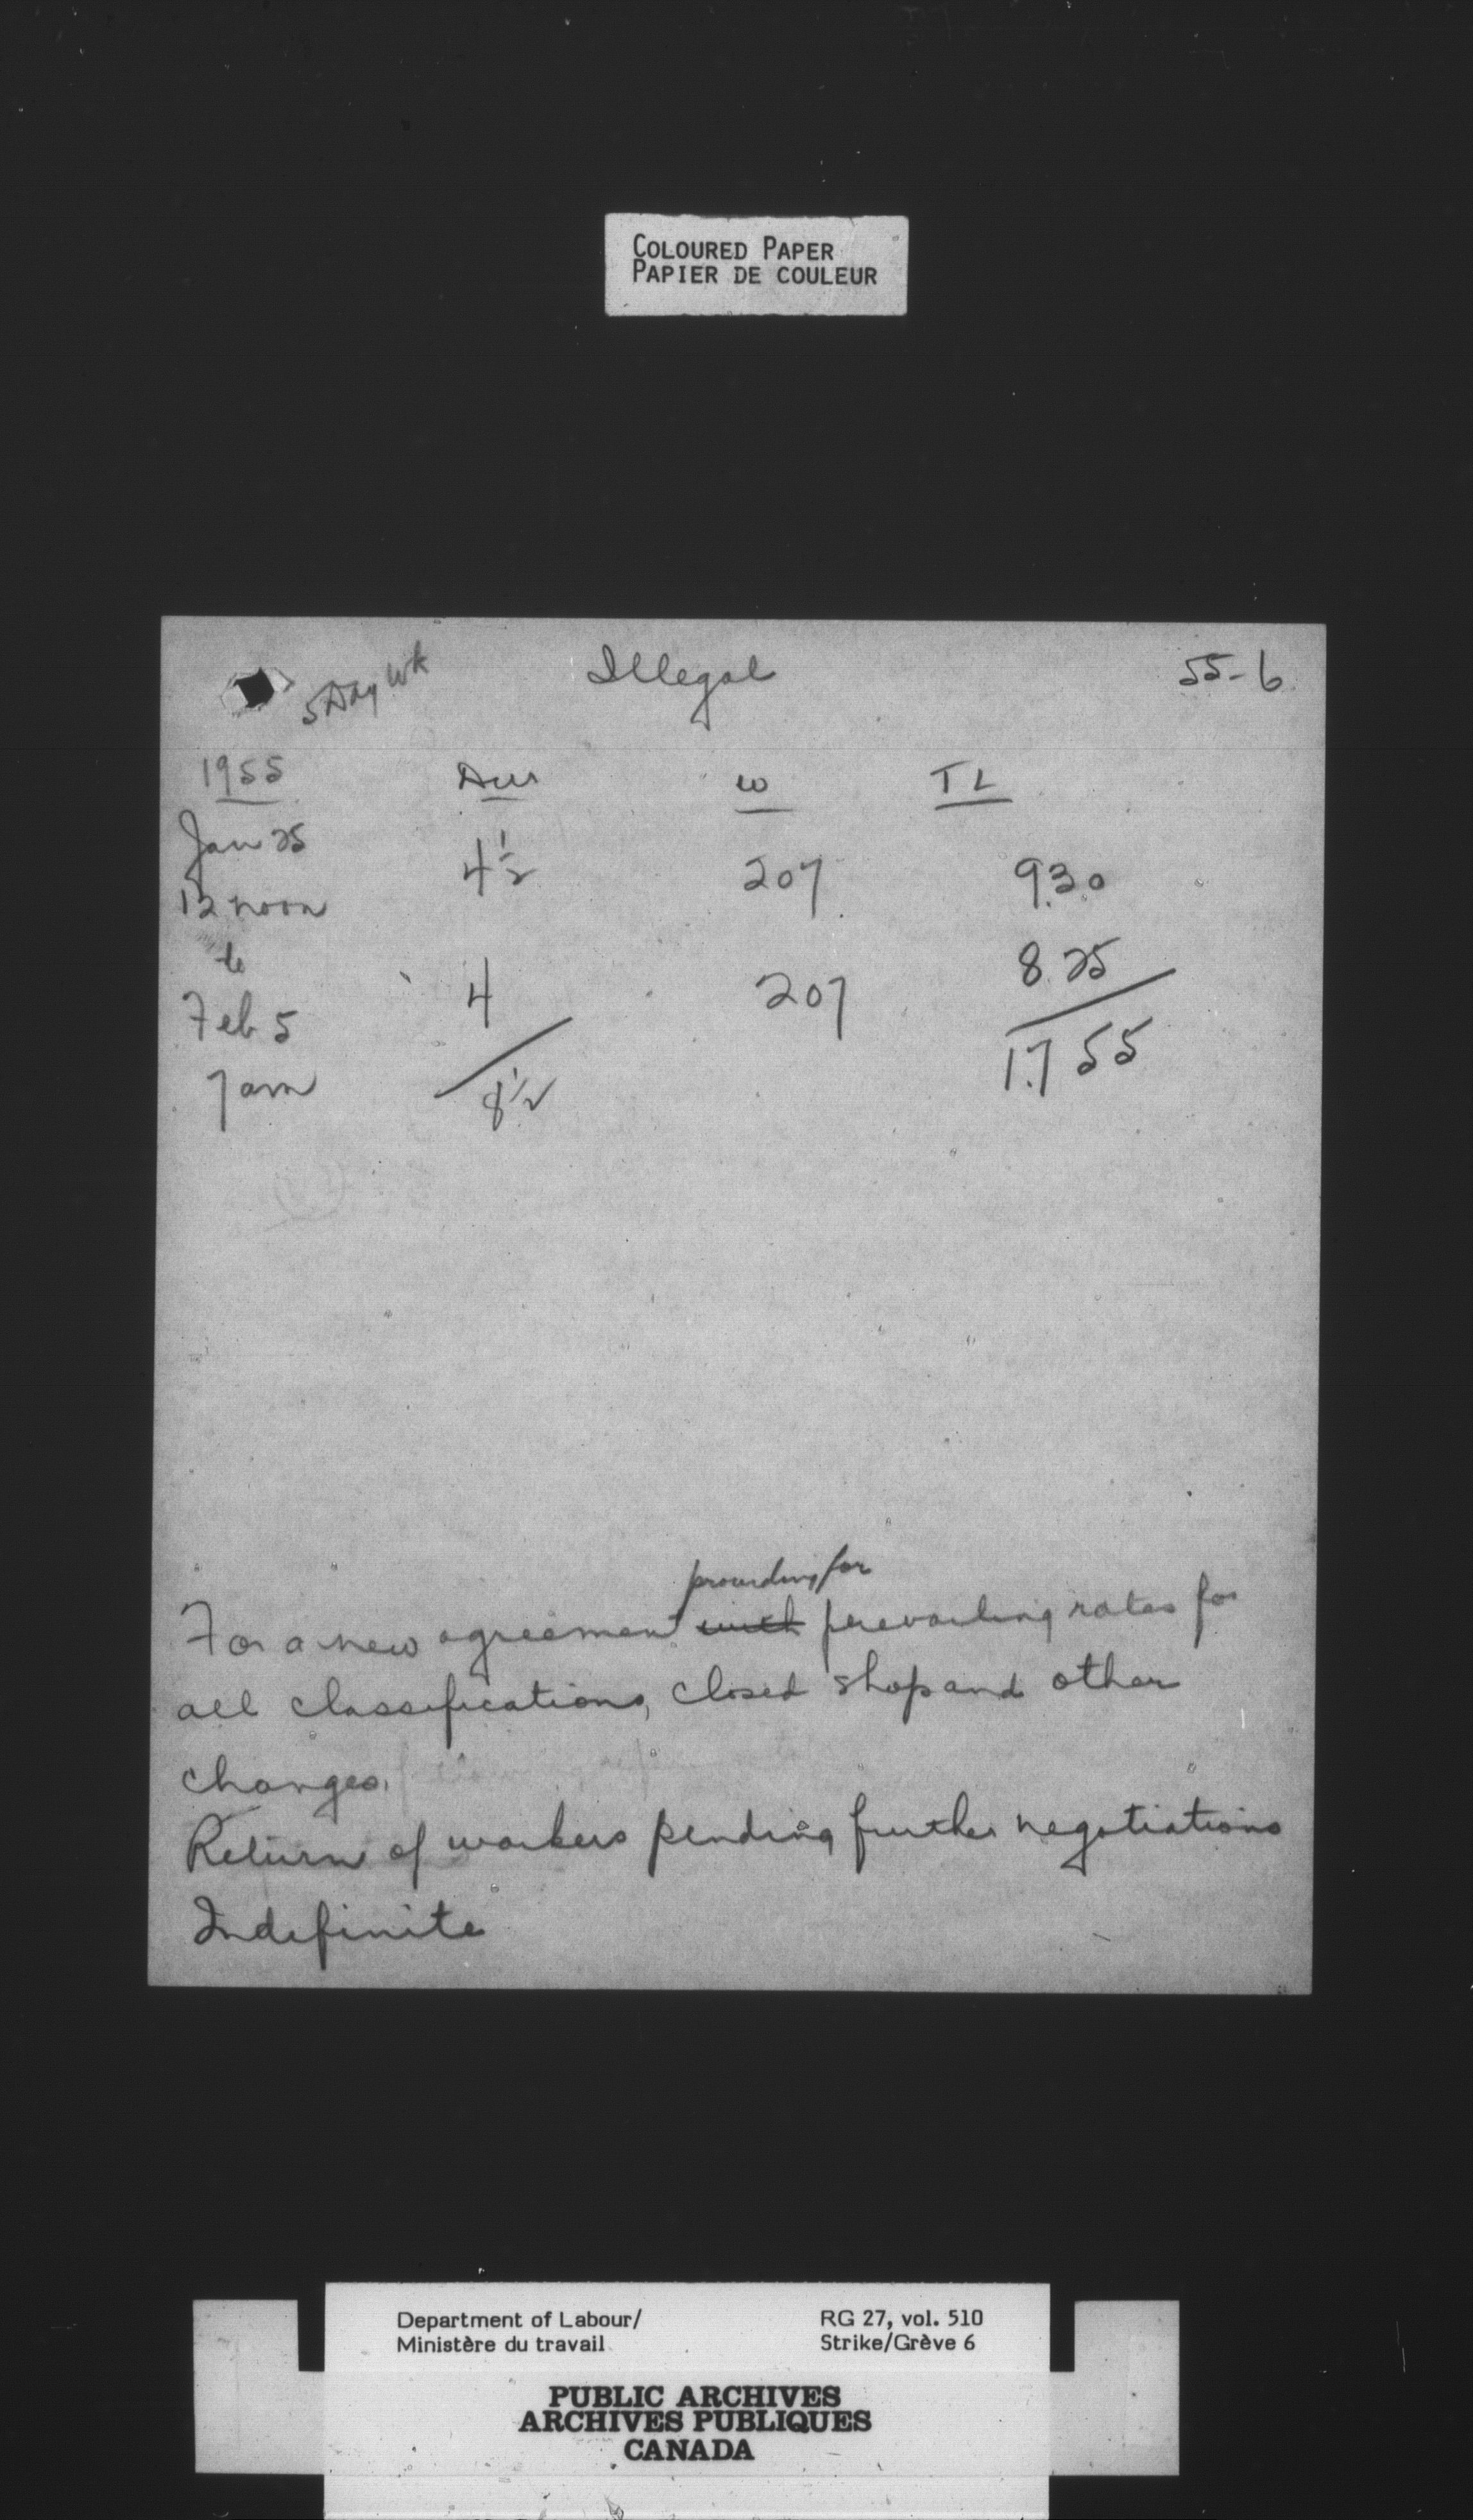 COLOURED PAPER
PAPIER DE COULEUR
5 Day Wk Illegal 55-6
1955 Dur W T L
Jan 25
12 noon 4 1/2 207 930
to
Feb 5 4 207 825
7 am 8 1/2 1755
providing for
For a new agreement with prevailing rates for
all classifications, closed shop and other
changes.
Return of workers pending further negotiations
Indefinite
Department of Labour/ RG 27, vol. 510
Ministère du travail Strike/Grève 6
PUBLIC ARCHIVES
ARCHIVES PUBLIQUES
CANADA